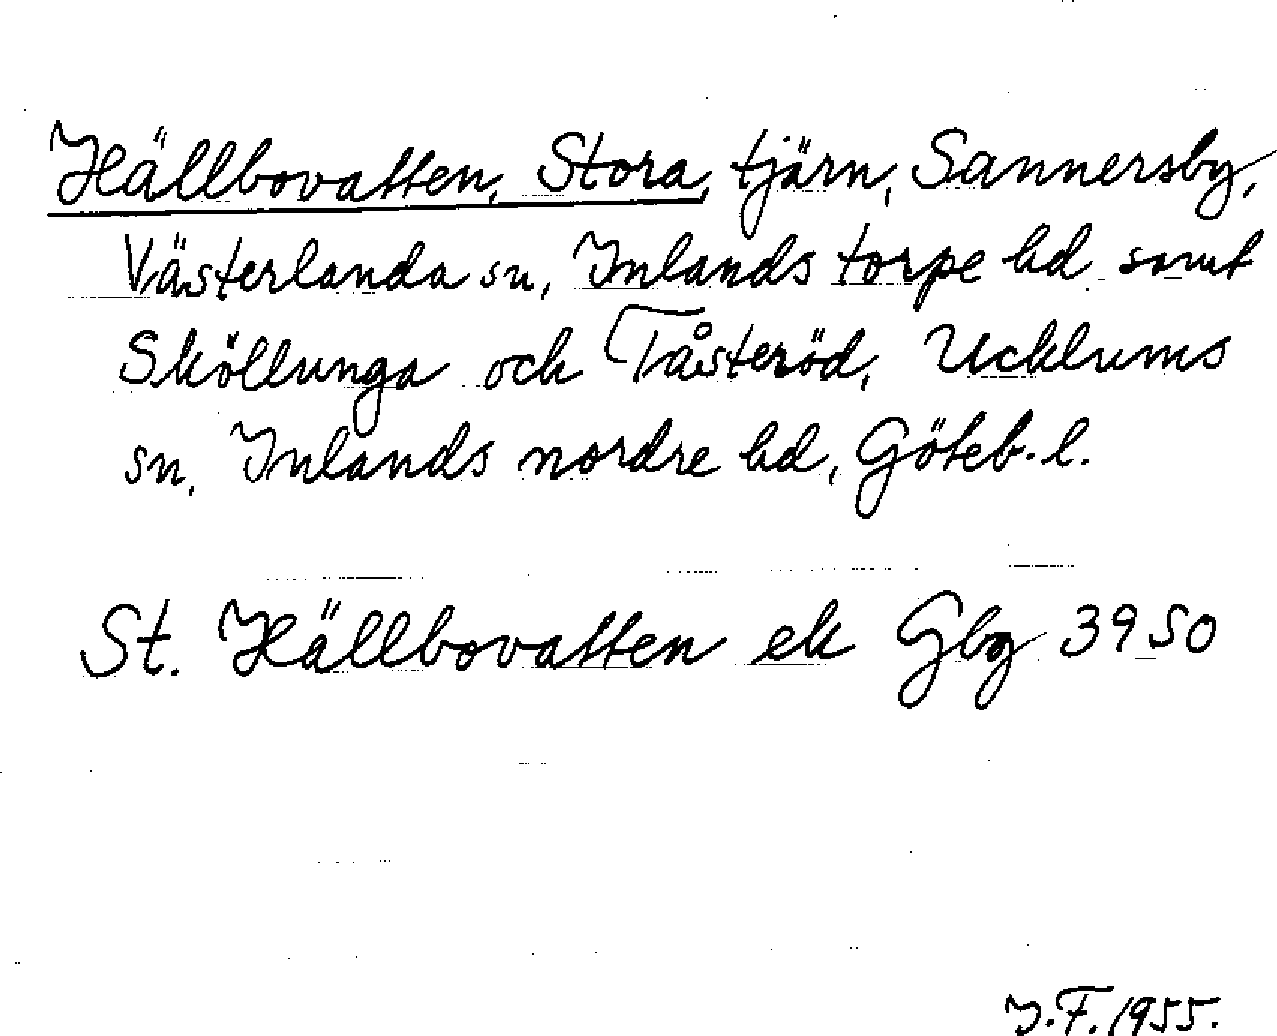 Hällbovatten, Stora, tjärn, Sannersby,
Västerlanda sn, Inlands torpe hd samt
Sköllunga och Tåsteröd, Ucklums
sn, Inlands nordre hd, Göteb. l.
St. Hällbovatten ek Gbg 3950
J.F. 1955.